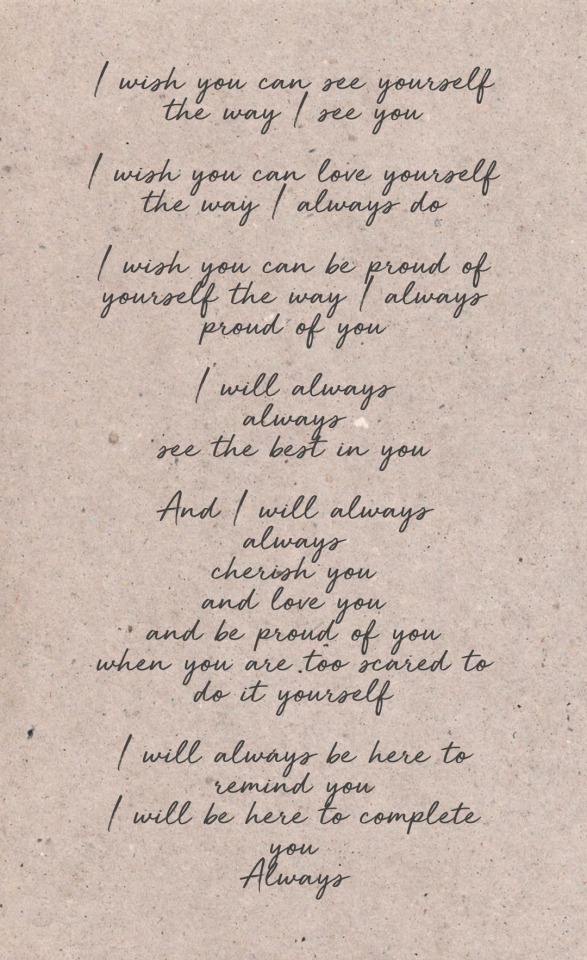 I wish you can see yourself
the way I see you
I wish you can love yourself
the way I always do
I wish you can be proud of
yourself the way I always
proud of you
I will always
always
see the best in you
And I will always
always
cherish you
and love you
and be proud of you
when you are too scared to
do it yourself
I will always be here to
remind you
I will be here to complete
you
Always